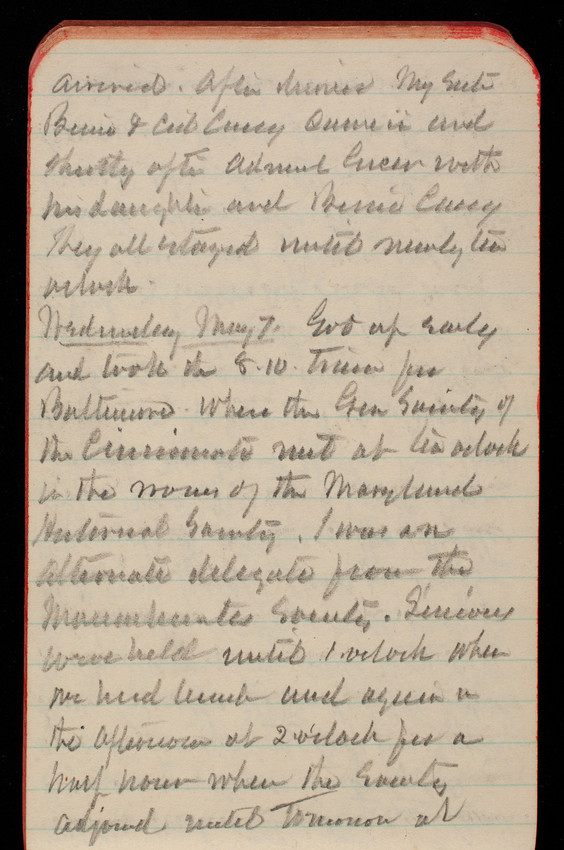 arrived. After dinner My
Bessie & Casey came in and
shortly after Admiral Greer with
his daughter and Bessie Casey
They all stayed until nearly ten
oclock.
Wednesday May 7. Got up early
and took the 8.10. Train for
Baltimore. Where the Gen Society of
the Cincinnati met at ten oclock
in the rooms of the Maryland
Historical Society. I was an
alternate delegate from the
Massachusetts Society. Sessions
were held until 1 oclock when
we had lunch and again in
the afternoon at 2 o'clock for a
half hour when the Society
adjourned until Tomorrow at